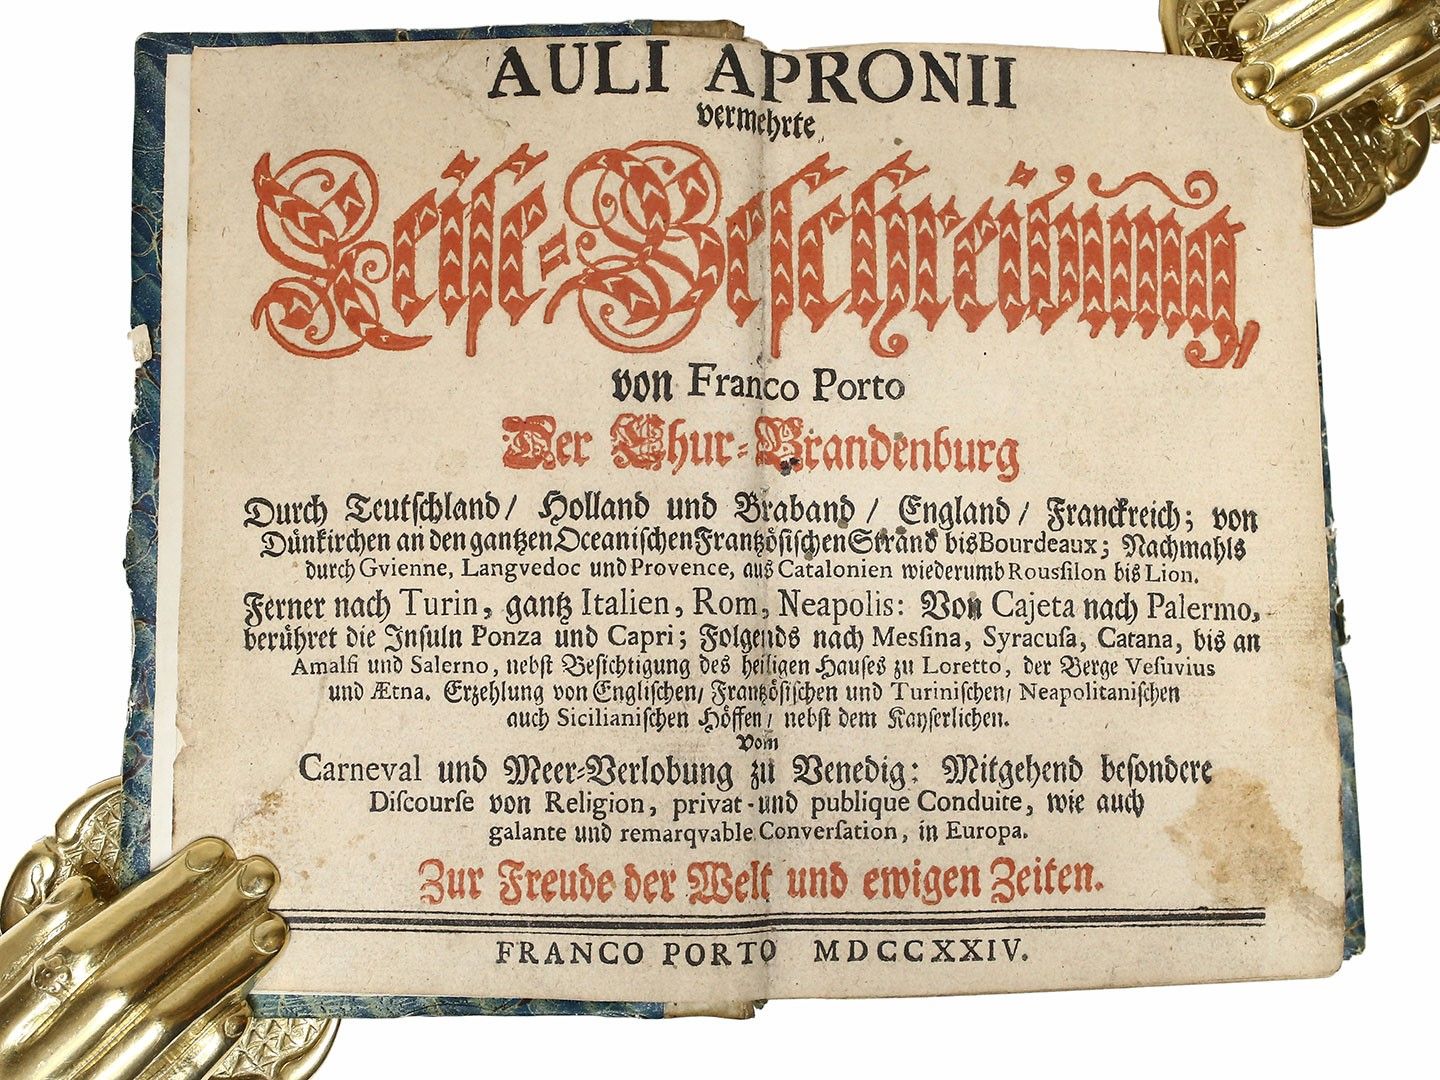 AULI APRONII
vermehrte
Reise-Beschreibung,
von Franco Porto
Der Chur-Brandenburg
Durch Teutschland/ Holland und Braband / England / Franckreich; von
Dünkirchen an den gantzen Oceanischen Frantzösischen Strand bis Bourdeaux; Nachmahls
durch Gvienne, Langvedoc und Provence, aus Catalonien wiederumb Roussilon bis Lion.
Ferner nach Turin, gantz Italien, Rom, Neapolis: Von Cajeta nach Palermo,
berühret die Insuln Ponza und Capri; Folgends nach Messina, Syracusa, Catana, bis an
Amalfi und Salerno, nebst Besichtigung des heiligen Hauses zu Loretto, der Berge Vesuvius
und Ætna. Erzehlung von Englischen/ Frantzösischen und Turinischen/ Neapolitanischen
auch Sicilianischen Höffen/ nebst dem Kayserlichen.
Vom
Carneval und Meer-Verlobung zu Venedig: Mitgehend besondere
Discourse von Religion, privat- und publique Conduite, wie auch
galante und remarqvable Conversation, in Europa.
Zur Freude der Welt und ewigen Zeiten.
FRANCO PORTO MDCCXXIV.